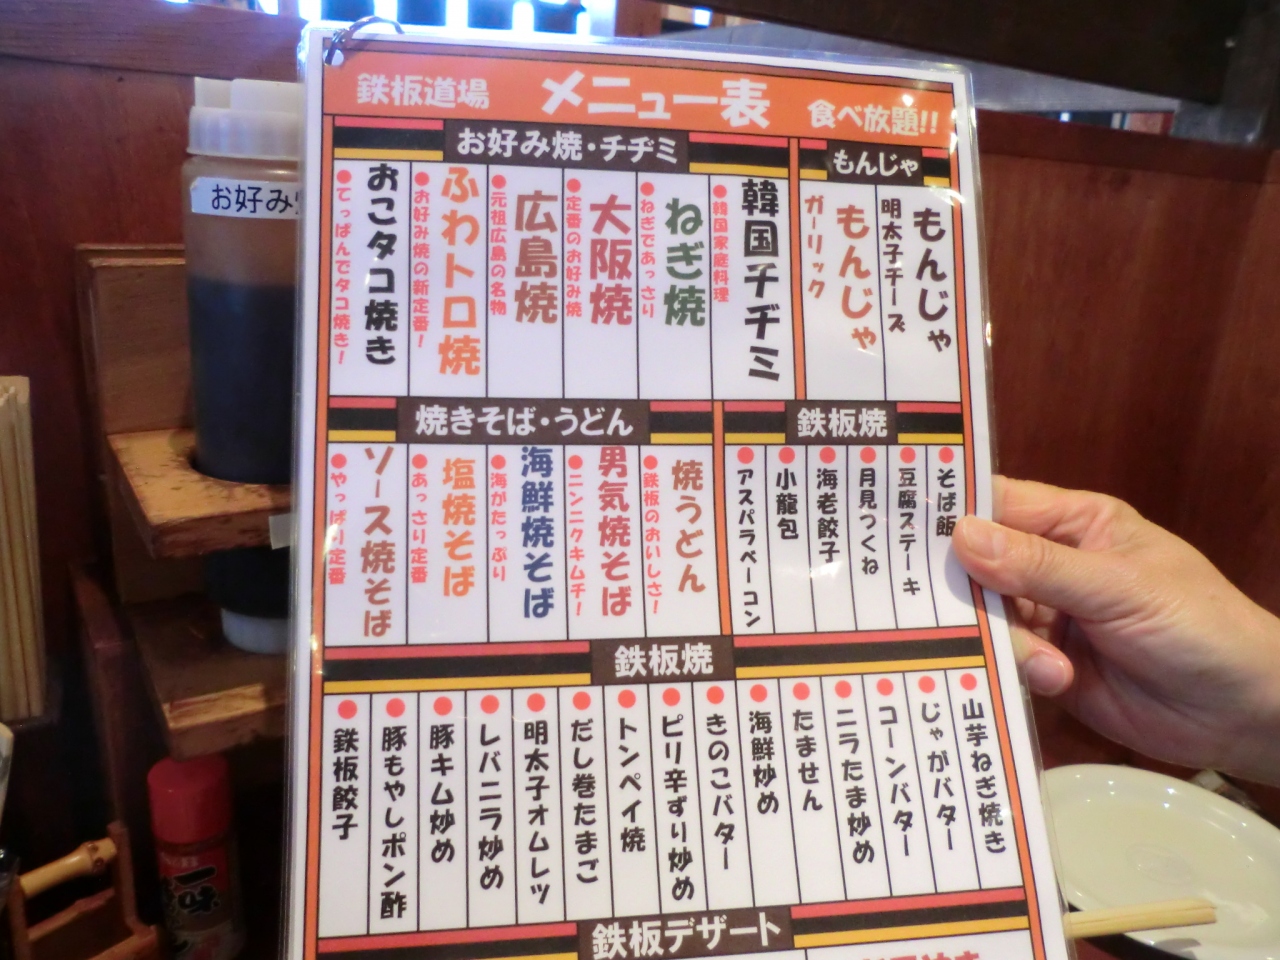 鉄板道場 メニュー表 食べ放題!!
お好み焼・チヂミ
もんじゃ
もんじゃ
明太子チーズ
もんじゃ
ガーリック
韓国チヂミ
●韓国家庭料理
ねぎ焼
●ねぎであっさり
大阪焼
●定番のお好み焼
広島焼
●元祖広島の名物
ふわトロ焼
●お好み焼の新定番!
おこタコ焼き
●てっぱんでタコ焼き!
焼きそば・うどん
鉄板焼
●そば飯
●豆腐ステーキ
●月見つくね
●海老餃子
●小龍包
●アスパラベーコン
焼うどん
●鉄板のおいしさ!
男気焼そば
●ニンニクキムチ!
海鮮焼そば
●海がたっぷり
塩焼そば
●あっさり定番
ソース焼そば
●やっぱり定番
鉄板焼
●山芋ねぎ焼き
●じゃがバター
●コーンバター
●ニラたま炒め
●たません
●海鮮炒め
●きのこバター
●ピリ辛ずり炒め
●トンペイ焼
●だし巻たまご
●明太子オムレツ
●レバニラ炒め
●豚キム炒め
●豚もやしポン酢
●鉄板餃子
鉄板デザート
お好み
一味